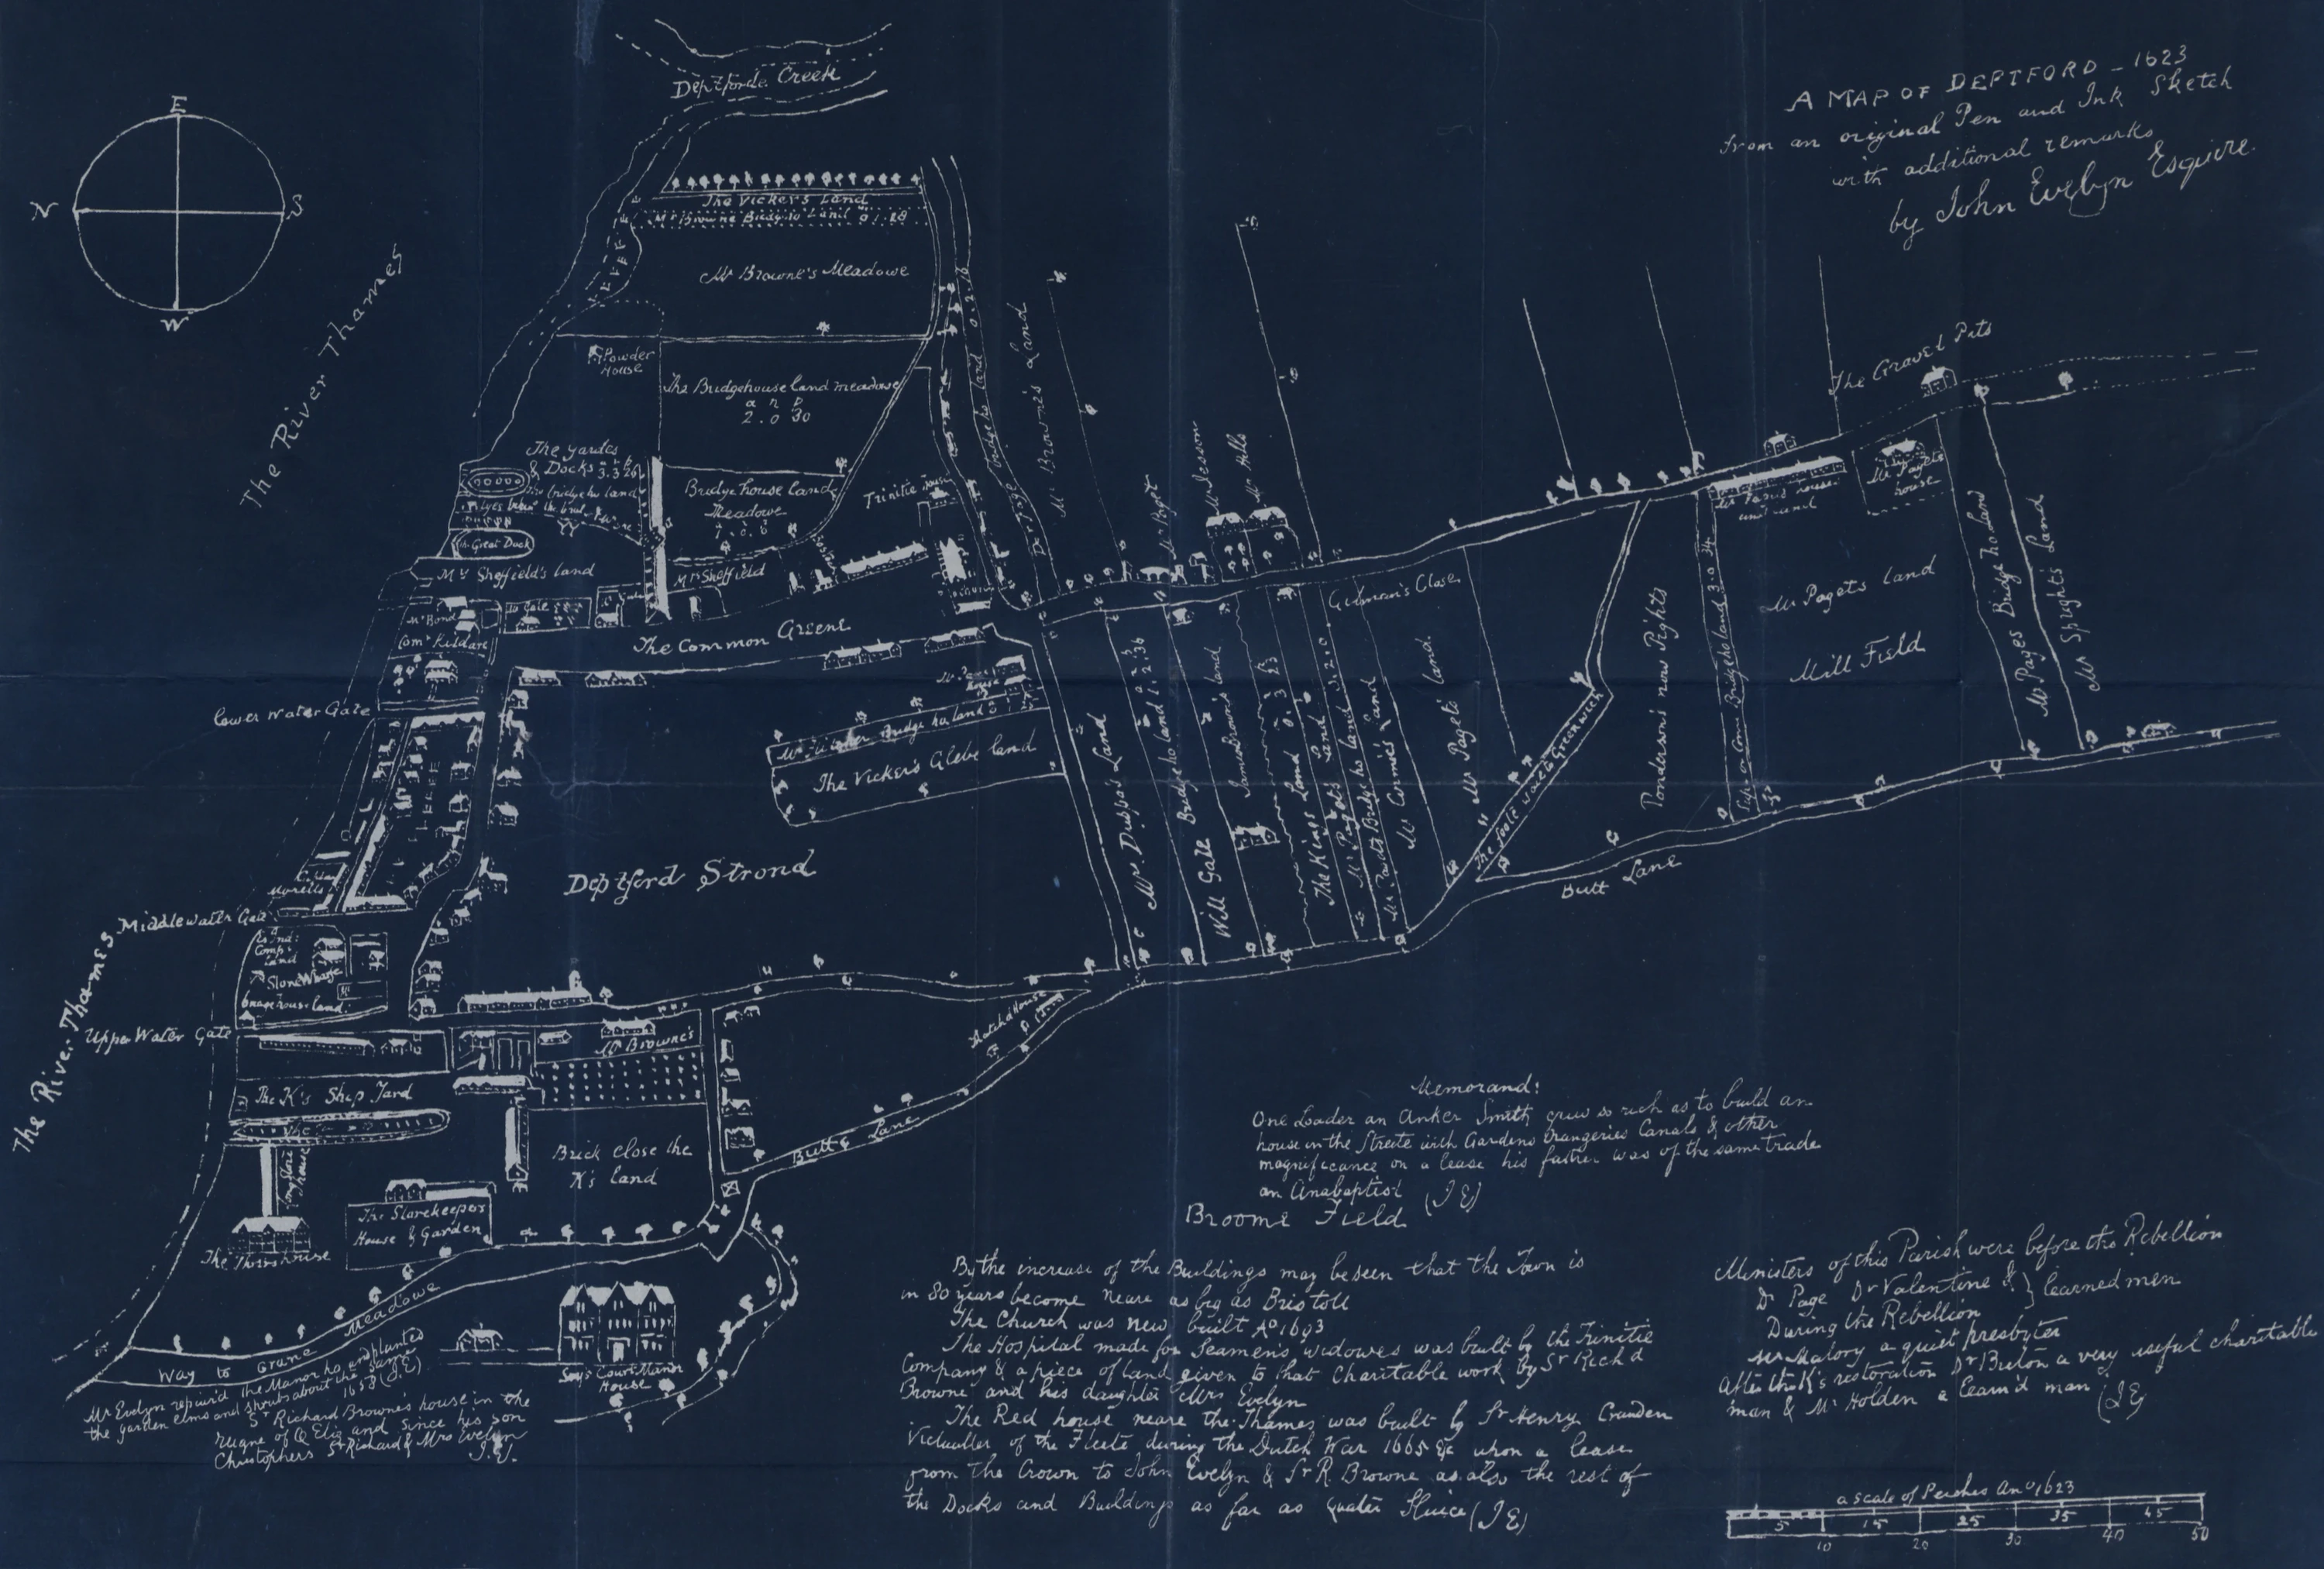 A MAP OF DEPTFORD - 1623
from an original Pen and Ink Sketch
with additional remarks
by John Evelyn Esquire
E
N
S
W
Deptforde Creek
The River Thames
The Vicker's Land
Mr Browne Bridg ho Land
Mr Browne's Meadowe
Powder
House
The Bridgehouse land meadowe
a r p
2. 0 30
The yardes
& Docks 3.3.26
Bridge house land
Meadowe
Trinitie house
The Great Dock
Mr Sheffield's land
Mr Sheffield
Mr Bond
Com Kildare
The Common Greene
Mr Browne's Land
Mr Paget
Mr Jesson
Mr Hills
The Gravel Pits
Gilman's Close
Mr Pagets
house
Mr Pagets Land
Mill Field
Mr Pages Bridge ho Land
Mr Spright's Land
Ponderson's now Pights
Bridge ho land 3.0.34
The foote waie to Greenwich
Mr Pagets land
Mr Cormes Land
The Kings Land
James Brown's land
Will Gale Bridge ho land
Mrs Dupps's Land
Lower Water Gate
Bridge ho land
The Vicker's Glebe land
Deptford Strond
Butt Lane
Middlewater Gate
Stone Wharfe
The River Thames
Upper Water Gate
Browne's
The K's Ship Yard
Brick close the
K's land
Butt Lane
The Storekeepers
House & Garden
Way to Crane Meadowe
Says Court Manor
House
Mr Evelyn repair'd the Manor ho. and planted
the garden elms and shrubs about the same
1653 (J.E)
Sr Richard Browne's house in the
reigne of Q Eliz and since his son
Christophers Sr Richard & Mrs Evelyn
J.E.
Memorand:
One Loader an Anker Smith grew so rich as to build an
house in the Streete with Gardens Orangeries Canals & other
magnificance on a lease his father was of the same trade
an Anabaptist (J E)
Broome Field
By the increase of the Buildings may be seen that the Town is
in 80 years become neare as big as Bristoll
The Church was new built Ao 1693
The Hospital made for Seamen's widowes was built by the Trinitie
Company & a piece of land given to that Charitable work by Sr Rich'd
Browne and his daughter Mrs Evelyn
The Red house neare the Thames was built by Sr Henry
Victualler of the Fleete during the Dutch War 1665 &c upon a lease
from the Crown to John Evelyn & Sr R. Browne as also the rest of
the Docks and Buildings as far as Sluice (J E)
Ministers of this Parish were before the Rebellion
Dr Page Dr Valentine & } learned men
During the Rebellion
Mr Malory a quiet presbyter
After the K's restoration Dr Breton a very useful charitable
man & Mr Holden a learn'd man (J E)
a scale of Perches Ano 1623
5 15 25 35 45
10 20 30 40 50